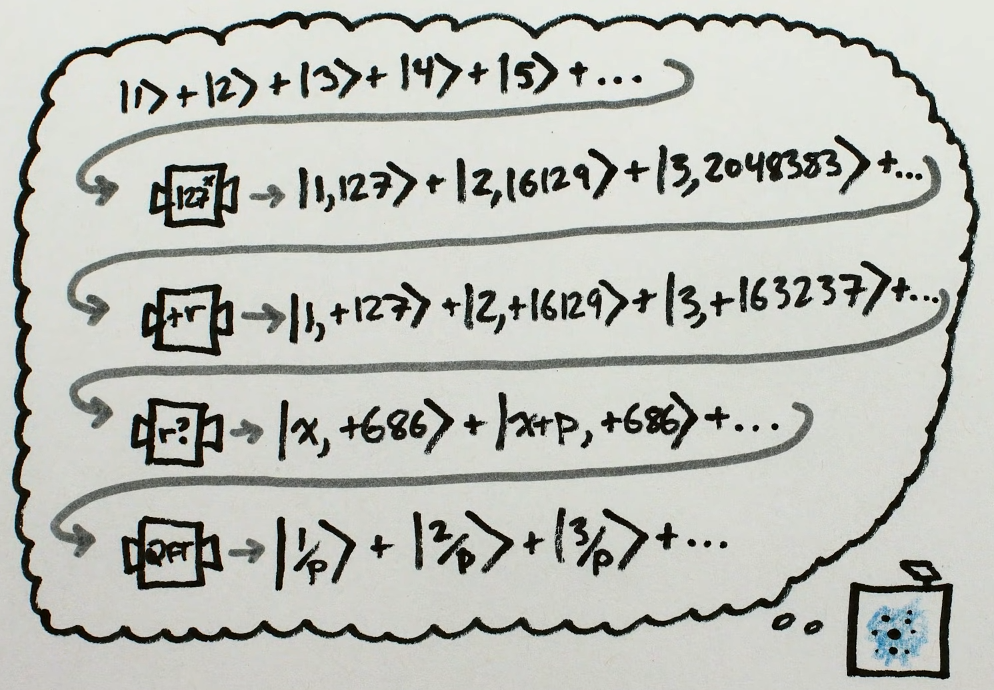 |1> + |2> + |3> + |4> + |5> + ...
127ˣ → |1,127> + |2,16129> + |3,2048383> + ...
+r → |1,+127> + |2,+16129> + |3,+163237> + ...
r? → |x, +686> + |x+p, +686> + ...
QFT → |1/p> + |2/p> + |3/p> + ...